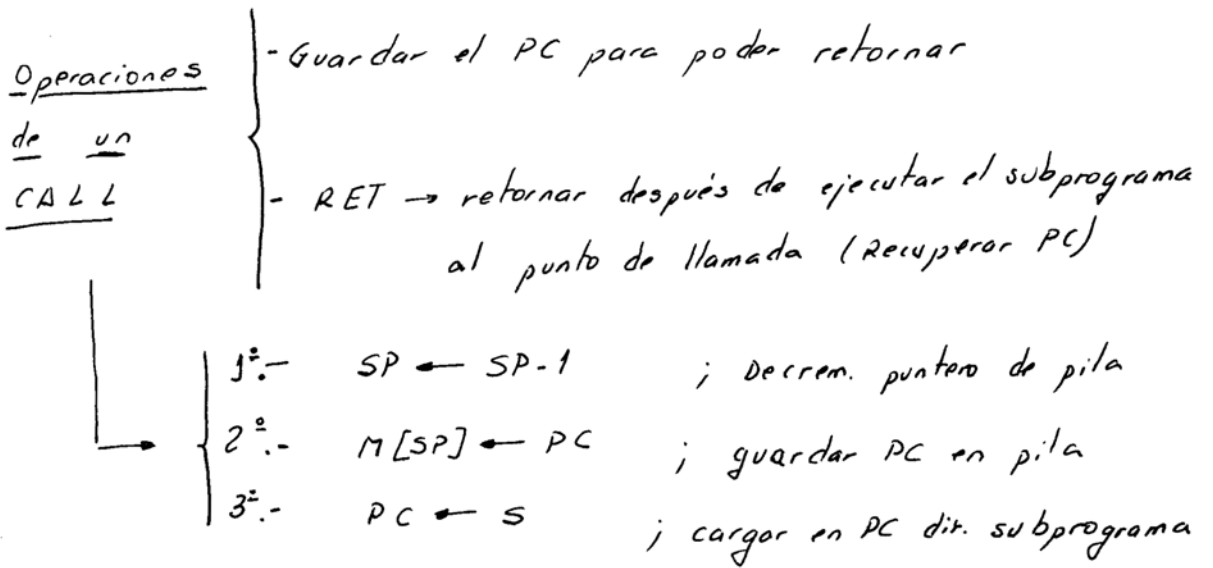 - Guardar el PC para poder retornar
Operaciones
de un
CALL
- RET → retornar después de ejecutar el subprograma
al punto de llamada (Recuperar PC)
1º.- SP ← SP-1 ; Decrem. puntero de pila
2º.- M[SP] ← PC ; guardar PC en pila
3º.- PC ← S ; cargar en PC dir. subprograma